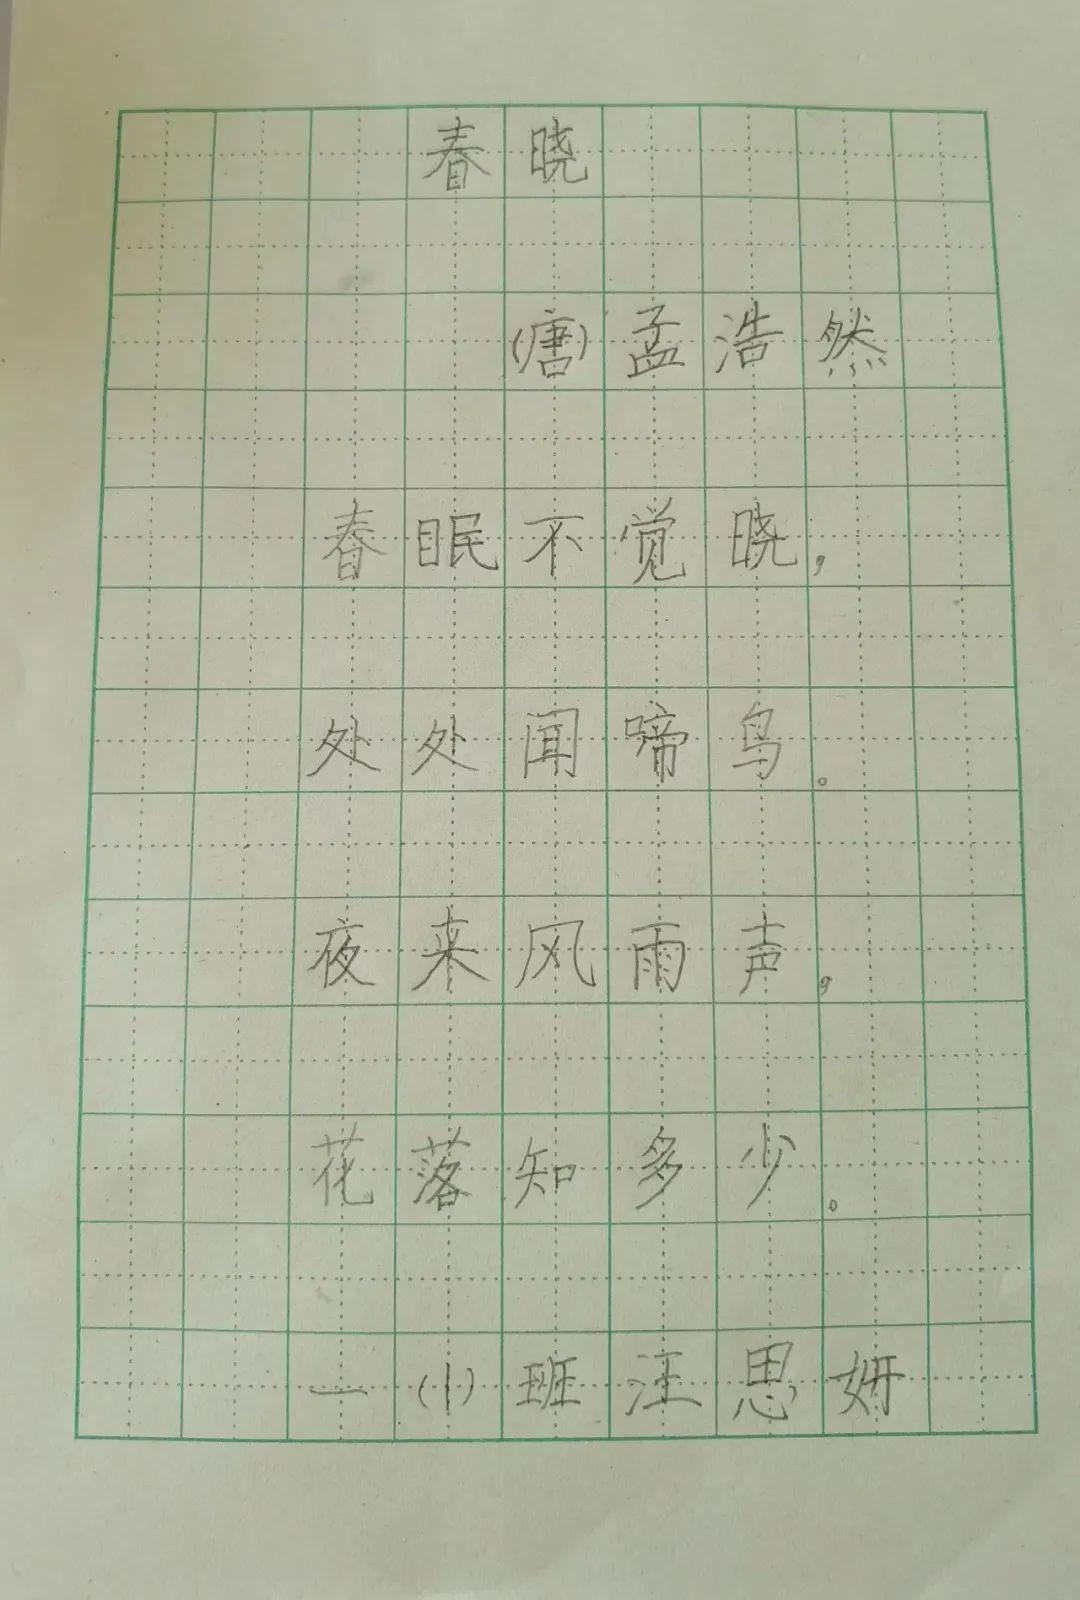 春晓
(唐)孟浩然
春眠不觉晓,
处处闻啼鸟。
夜来风雨声,
花落知多少。
一(1)班汪思妍